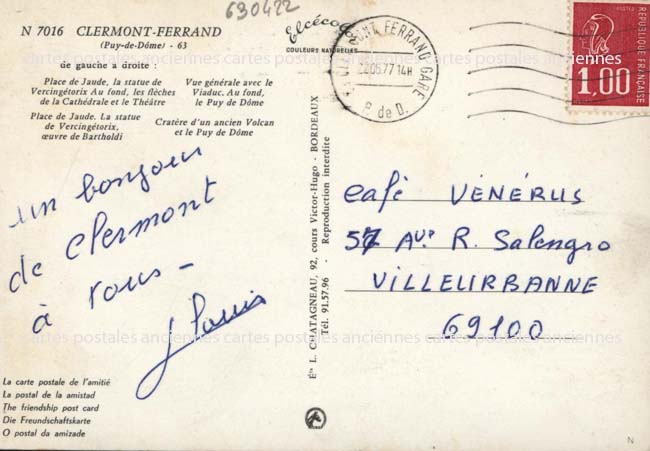 630422
N 7016 CLERMONT-FERRAND
(Puy-de-Dôme) - 63
de gauche à droite :
Place de Jaude, la statue de
Vercingétorix Au fond, les flèches
de la Cathédrale et le Théâtre
Vue générale avec le
Viaduc. Au fond,
le Puy de Dôme
Place de Jaude. La statue
de Vercingétorix,
œuvre de Bartholdi
Cratère d'un ancien Volcan
et le Puy de Dôme
un bonjour
de Clermont
à tous -
La carte postale de l'amitié
La postal de la amistad
The friendship post card
Die Freundschaftskarte
O postal da amizade
Elcécolor
COULEURS NATURELLES
Éts L. CHATAGNEAU, 92, cours Victor-Hugo - BORDEAUX
Tél. 91.57.96 - Reproduction interdite
CLERMONT FERRAND GARE
05 77 14H
P. de D.
POSTES
1,00
REPUBLIQUE FRANÇAISE
Café VÉNÉRUS
57 Ave R. Salengro
VILLEURBANNE
69100
cartes postales anciennes cartes postales anciennes
cartes postales anciennes cartes postales anciennes
cartes postales anciennes cartes postales anciennes
N